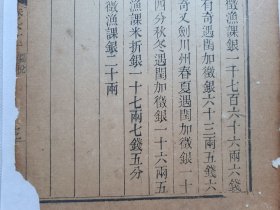 徵漁課銀一千七百六十六兩六錢
有奇遇閏加徵銀六十三兩五錢六
奇又劍川州春夏遇閏加徵銀一十
四分秋冬遇閏加徵銀一十六兩五
徵漁課米折銀一十七兩七錢五分
徵漁課銀二十兩